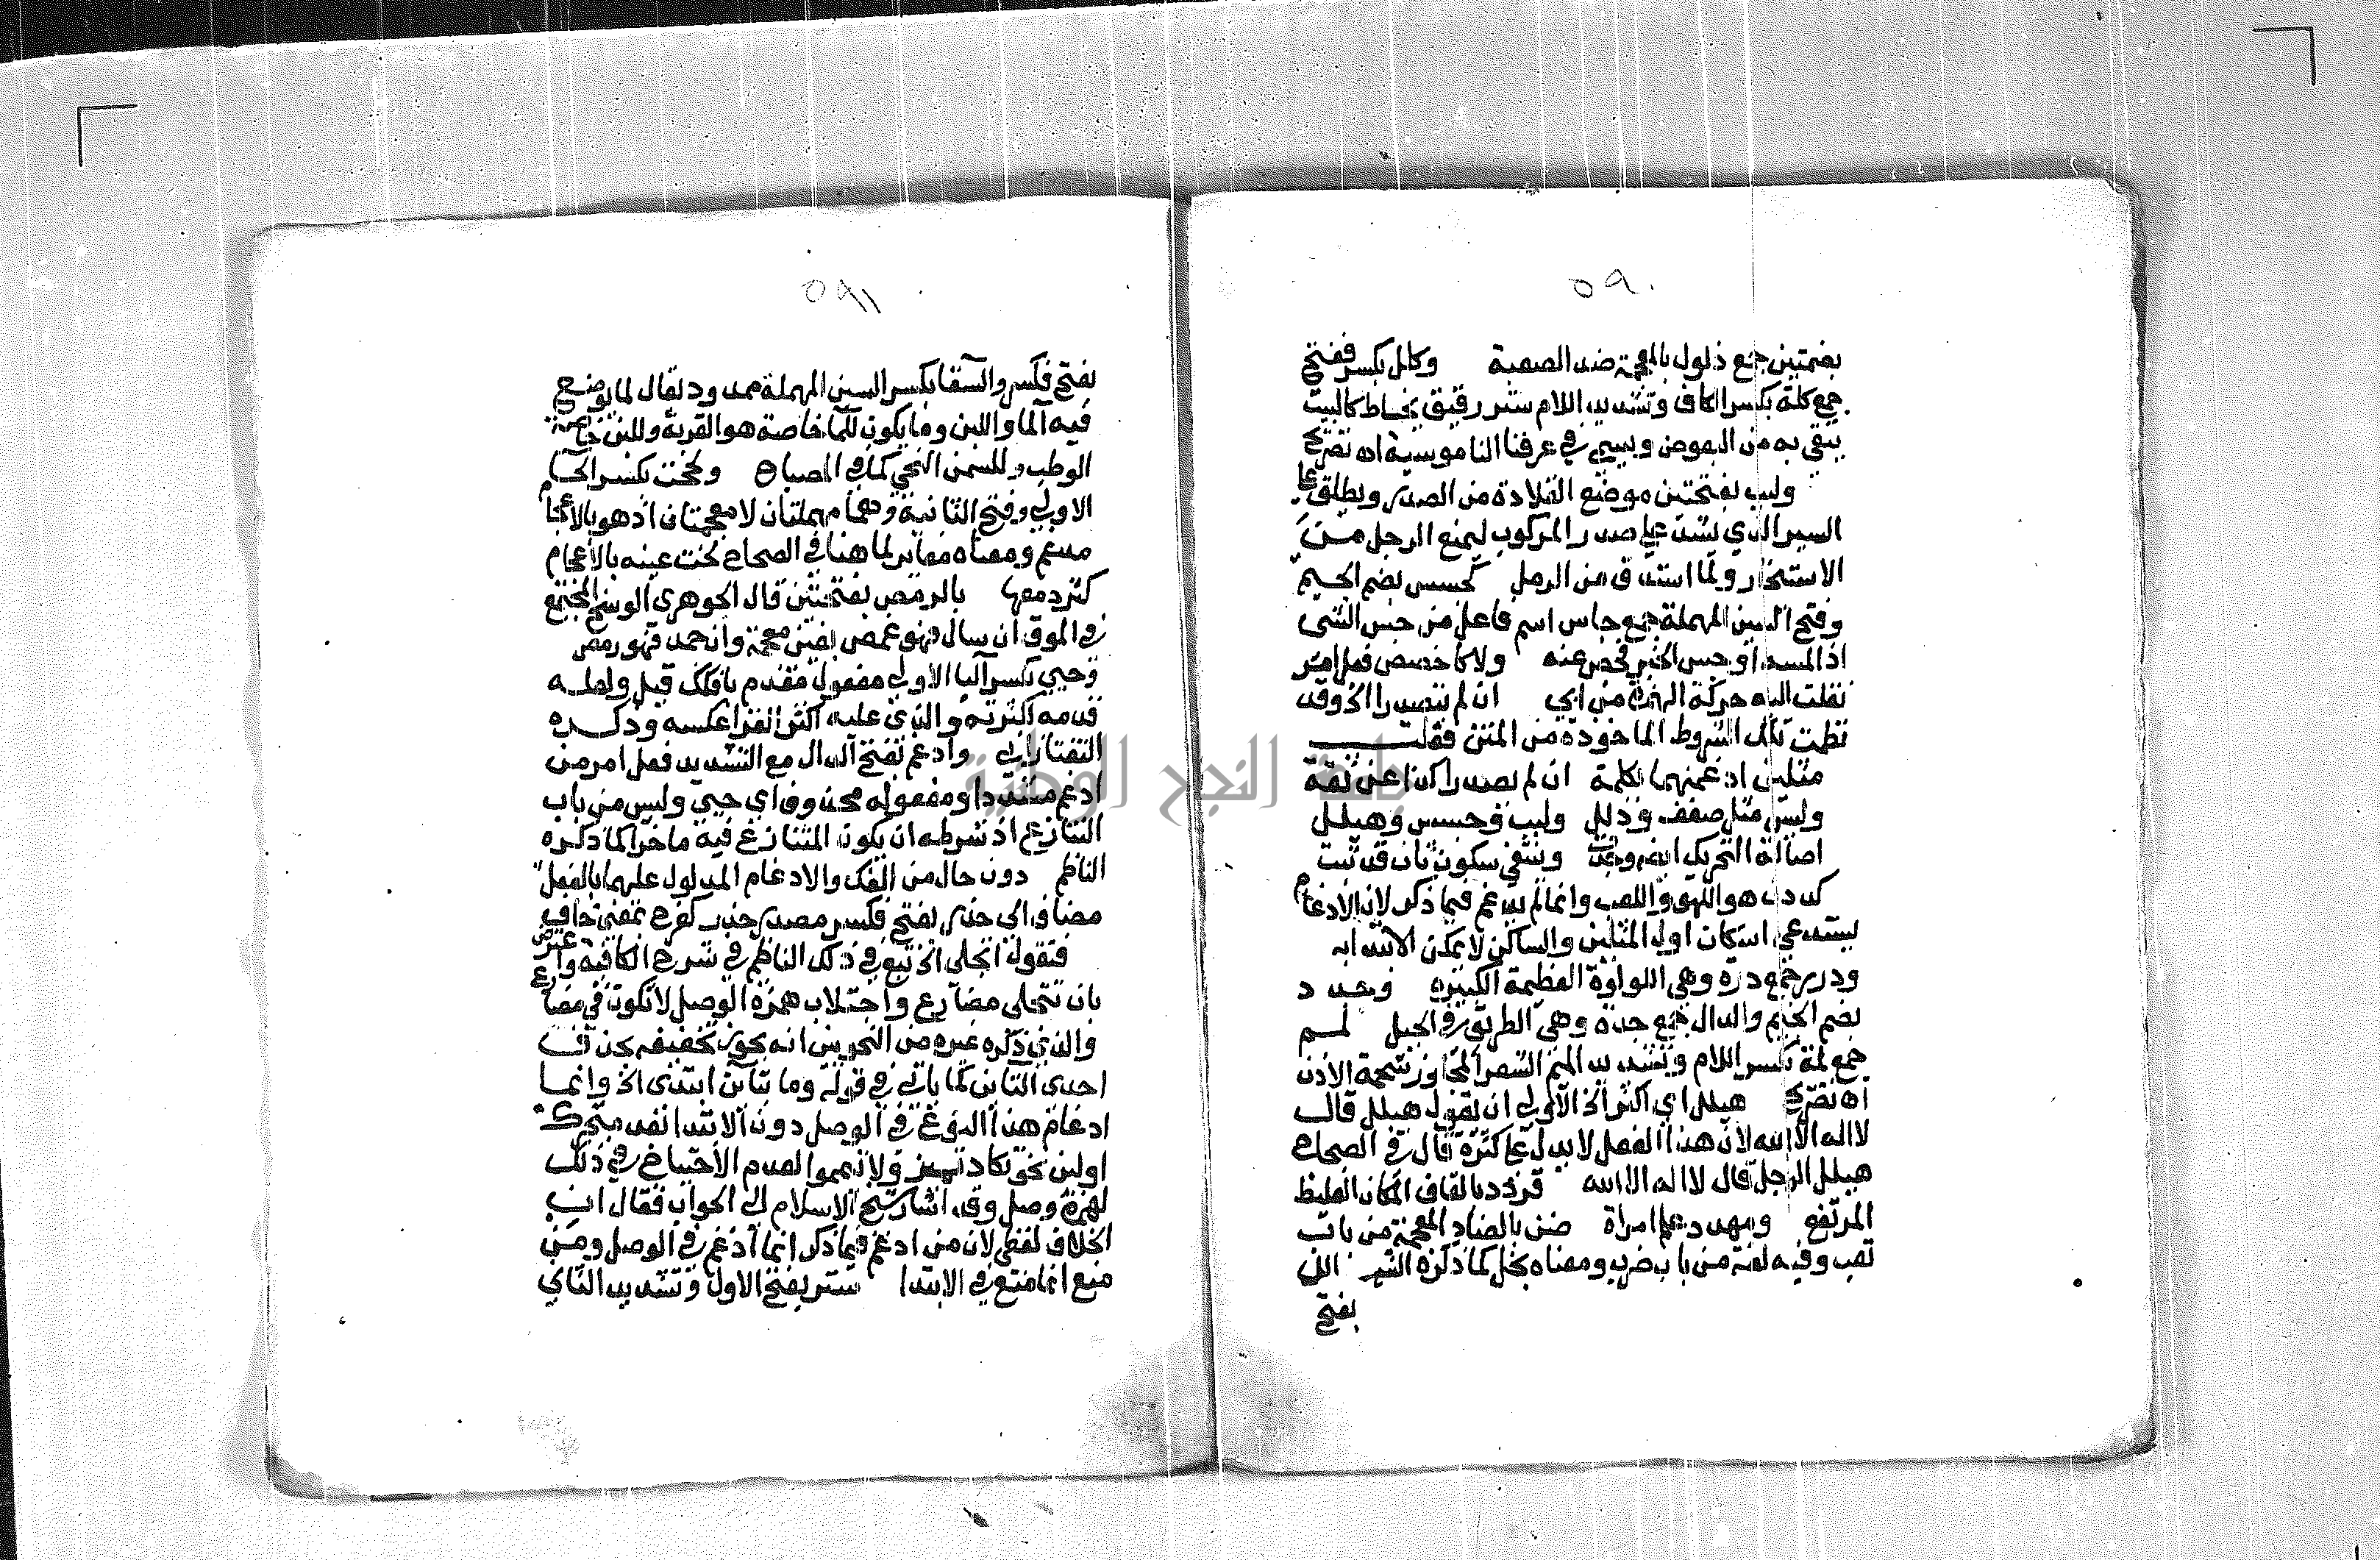 ٥٩٠
بضمتين جمع ذلول بالمعجمة ضد الصعبة وكلل بكسر ففتح
جمع كلة بكسر الكاف وتشديد اللام ستر رقيق يخاط كالبيت
يتقى به من البعوض ويسمى في عرفنا الناموسية اه تصريح
ولبب بفتحتين موضع القلادة من الصدر ويطلق على
السير الذي يشد على صدر المركوب ليمنع الرحل من
الاستئخار ولما استدق من الرمل كجسس بضم الجيم
وفتح السين المهملة جمع جاس اسم فاعل من جس الشى
اذا لمسه او جس الخبر فحص عنه ولا كاخصص فعل امر
نقلت اليه حركة الهمزة من ابي ان لم يتصدرا الخ وقد
نظمت تلك الشروط الماخوذة من المتن فقلت
مثلين ادغمنهما بكلمة ان لم يصدرا كذا عن ثقة
وليس مثل صفف وذلل ولبب وجسس وهيلل
اصالة التحريك ايضا وجبت وينتفي سكون ثان قد ثبت
كددن هو اللهو واللعب وانما لم يدغم فيما ذكر لان الادغام
يستدعي اسكان اول المثلين والساكن لا يمكن الابتدا به
ودرر جمع درة وهي اللولوة العظيمة الكبيرة وجدد
بضم الجيم والدال جمع جدة وهي الطريق في الجبل لمم
جمع لمة بكسر اللام وتشديد الميم الشعر المجاوز شحمة الاذن
اه تصريح هيلل اي اكثر الخ الاولى ان يقول هيلل قال
لا اله الا الله لان هذا الفعل لا يدل على كثرة قال في الصحاح
هيلل الرجل قال لا اله الا الله قردد بالقاف المكان الغليظ
المرتفع ومهدد علم امراة ضنن بالضاد المعجمة من باب
تعب وفيه لغة من باب ضرب ومعناه بخل كما ذكره الشر الل
بفتح
٥٩١
بفتح فكسر والسقا بكسر السين المهملة ممدود يقال لما يوضع
فيه الما واللبن وما يكون للما خاصة هو القربة وللبن خاصة
الوطب وللسمن النحي كما في المصباح ولححت بكسر الحا
الاولى وفتح الثانية وهما مهملتان لا معجمتان اذ هو بالاعجام
مدغم ومعناه مغاير لما هنا في الصحاح لخت عينه بالاعجام
كثر دمعها بالرمص بفتحتين قال الجوهري الوسخ المجتمع
في الموق ان سال فهو غمص بغين معجمة وان جمد فهو رمص
وحيي بكسر اليا الاولى مفعول مقدم بافكك قيل ولعله
قدمه اكثريته والذي عليه اكثر القرا عكسه وذكره
التفتازاني وادغم بفتح الدال مع التشديد فعل امر من
ادغم مشددا ومفعوله محذوف اي حيي وليس من باب
التنازع اذ شرطه ان يكون المتنازع فيه ماخرا كما ذكره
الناظم دون حال من الفك والادغام المدلول عليهما بالفعل
مضاف الى حذر بفتح فكسر مصدر حذر كفرح بمعنى خاف
فتقول اتجلى الخ تبع في ذلك الناظم في شرح الكافية واعترض
بان تتجلى مضارع واجتلاب همزة الوصل لا تكون في مضارع
والذي ذكره غيره من النحويين انه يجوز تخفيفه بحذف
احدى التاين كما ياتي في قوله وما بتاين ابتدى الخ وانما
ادغام هذا النوع في الوصل دون الابتدا نفد متحرك
اولين نحو تكاد تميز ولا تيمموا لعدم الاحتياج في ذلك
لهمزة وصل وقد اشار شيخ الاسلام الى الجواب فقال ان
الخلاف لفظي لان من ادغم فيما ذكر انما ادغم في الوصل ومن
منع انما منع في الابتدا ستر بفتح الاول وتشديد الثاني
جامعة النجاح الوطنية